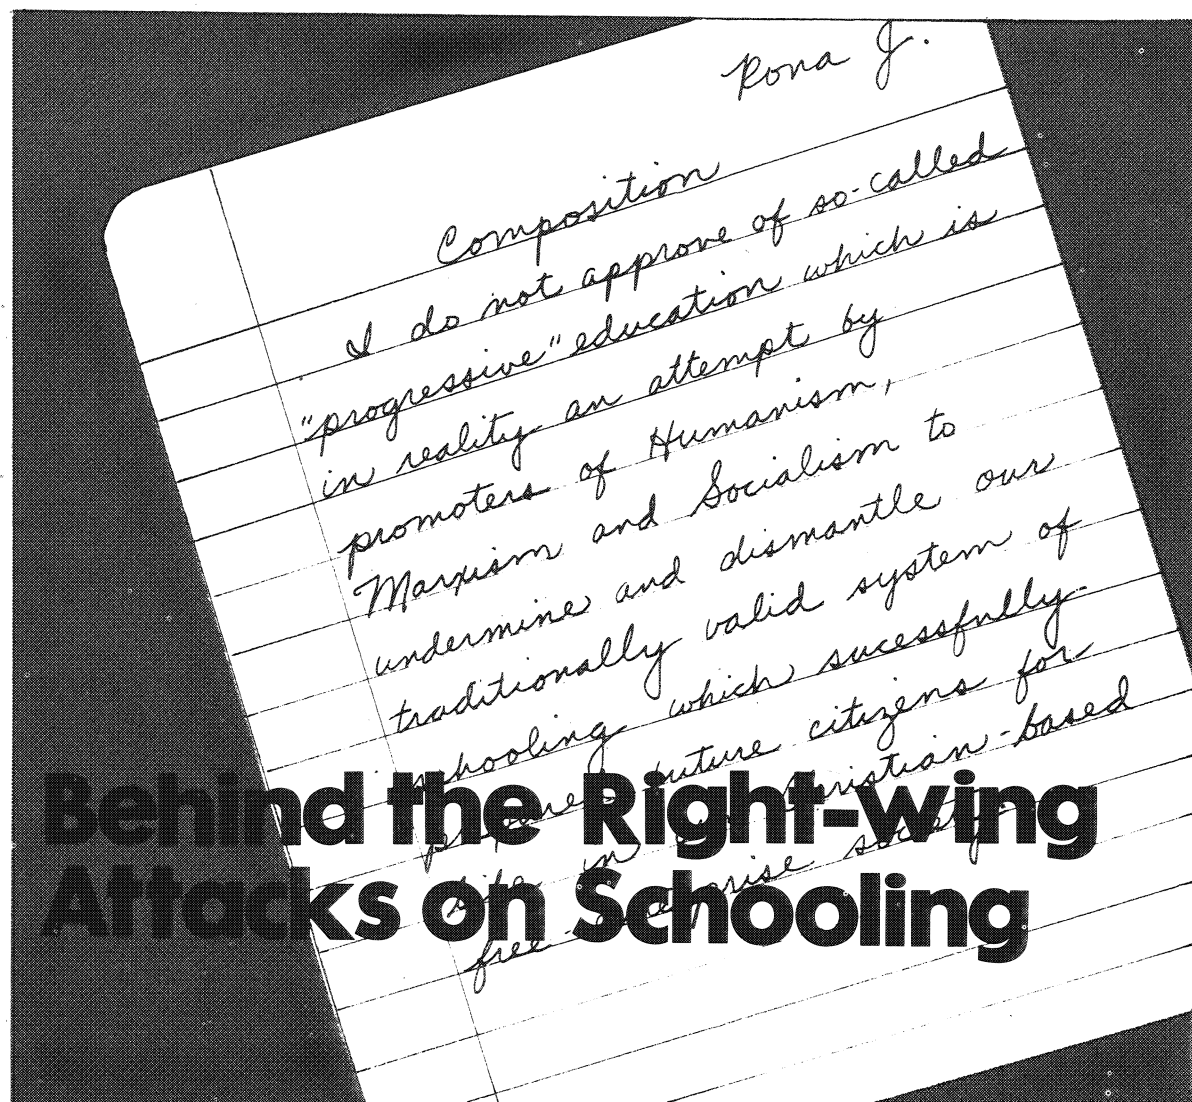 Rona J.
Composition
I do not approve of so-called
"progressive" education which is
in reality an attempt by
promoters of Humanism,
Marxism and Socialism to
undermine and dismantle our
traditionally valid system of
schooling which sucessfully
prepares future citizens for
life in our Christian-based
free-enterprise society
Behind the Right-wing
Attacks on Schooling